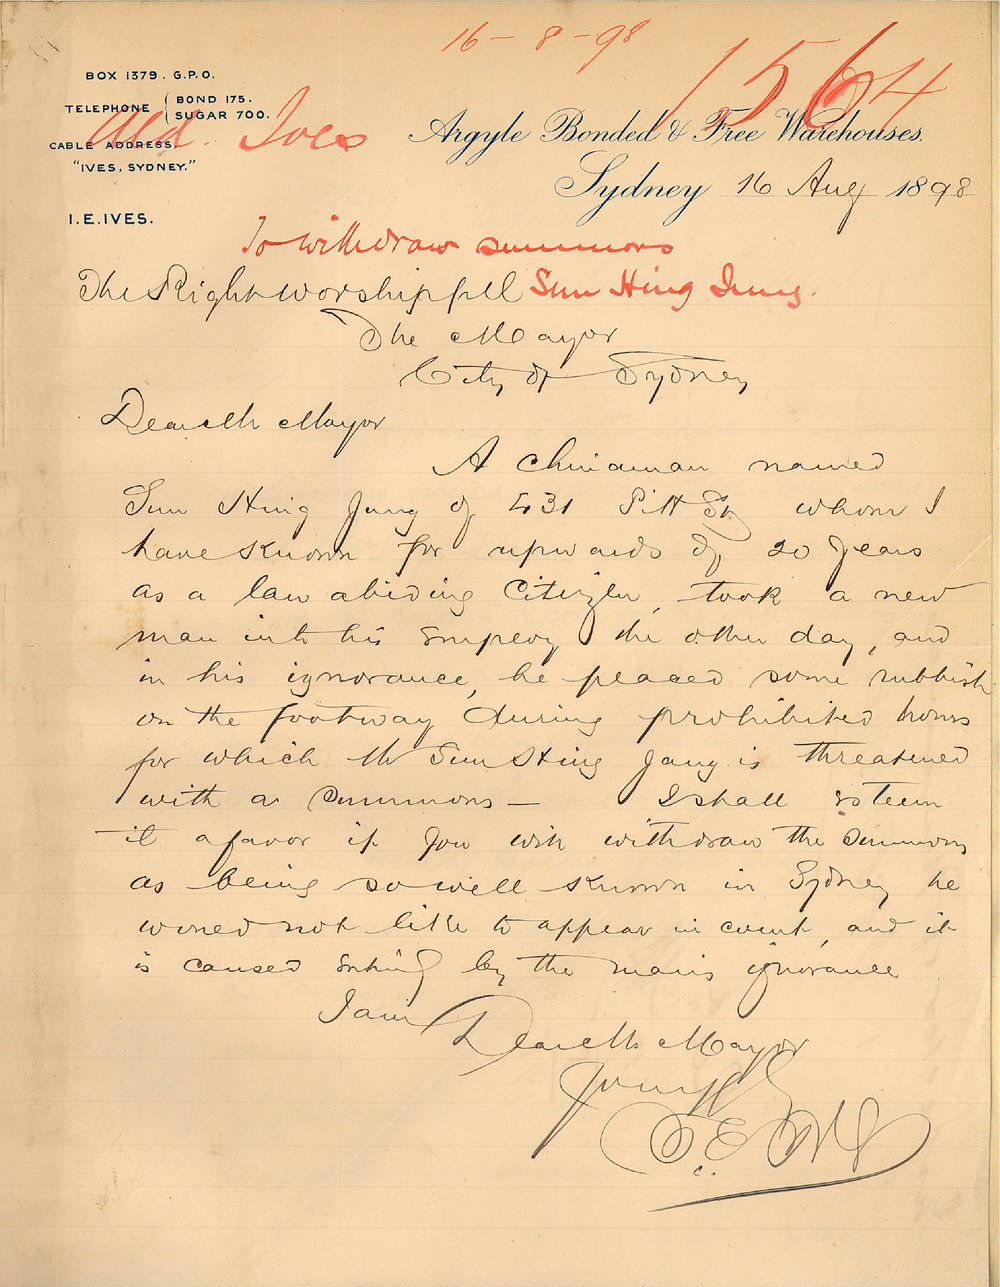 16 - 8 - 98
1564
BOX 1379. G.P.O.
TELEPHONE { BOND 175.
SUGAR 700.
Ald. Ives
CABLE ADDRESS,
"IVES, SYDNEY."
I.E.IVES.
Argyle Bonded & Free Warehouses.
Sydney 16 Aug 1898
To withdraw summons
Sun Hing Jung.
The Right Worshipful
The Mayor
City of Sydney
Dear Mr Mayor
A Chinaman named
Sun Hing Jung of 431 Pitt St, whom I
have known for upwards of 20 years
as a law abiding Citizen, took a new
man into his employ the other day, and
in his ignorance, he placed some rubbish
on the footway during prohibited hours
for which Mr Sun Hing Jang is threatened
with a summons — I shall esteem
it a favor if you will withdraw the summons
as being so well known in Sydney he
would not like to appear in court, and it
is caused entirely by the mans ignorance
I am
Dear Mr Mayor
Yours
I. E. Ives